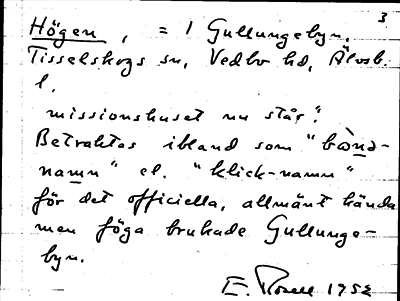 3
Högen, = 1 Gullungebyn,
Tisselskogs sn, Vedbo hd, Älvsb.
l.
missionshuset nu står".
Betraktas ibland som "bònd-
namn" el. "klick-namn"
för det officiella, allmänt kända
men föga brukade Gullunge-
byn.
E. Rosell 1952